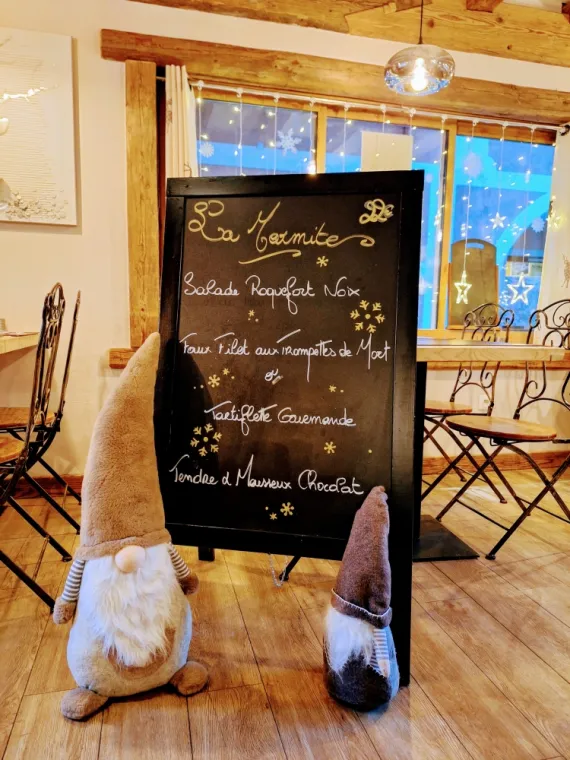 La Marmite
Salade Roquefort Noix
Faux Filet aux Trompettes de Mort
or
Tartiflette Gourmande
Tendre & Mousseux Chocolat